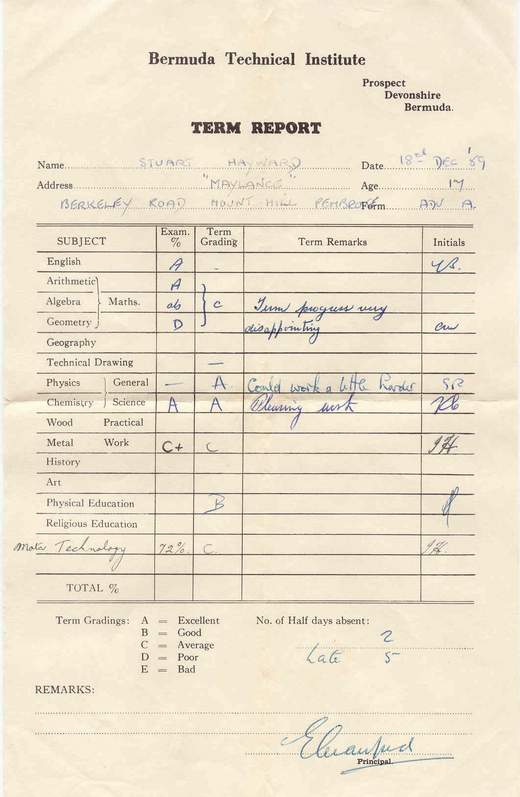 Bermuda Technical Institute
Prospect
Devonshire
Bermuda.
TERM REPORT
Name STUART HAYWARD Date 18 DEC '59
Address "MAYLANCE" Age 17
BERKELEY ROAD MOUNT HILL PEMBROKE Form ADV A.
SUBJECT Exam. % Term Grading Term Remarks Initials
English A -
Arithmetic A
Algebra Maths. ab C Term progress very
Geometry D disappointing
Geography
Technical Drawing —
Physics General — A Could work a little harder SR
Chemistry Science A A Pleasing work
Wood Practical
Metal Work C+ C JH
History
Art
Physical Education B
Religious Education
Motor Technology 72% C JH.
TOTAL %
Term Gradings: A = Excellent No. of Half days absent:
B = Good 2
C = Average Late 5
D = Poor
E = Bad
REMARKS:
Principal.